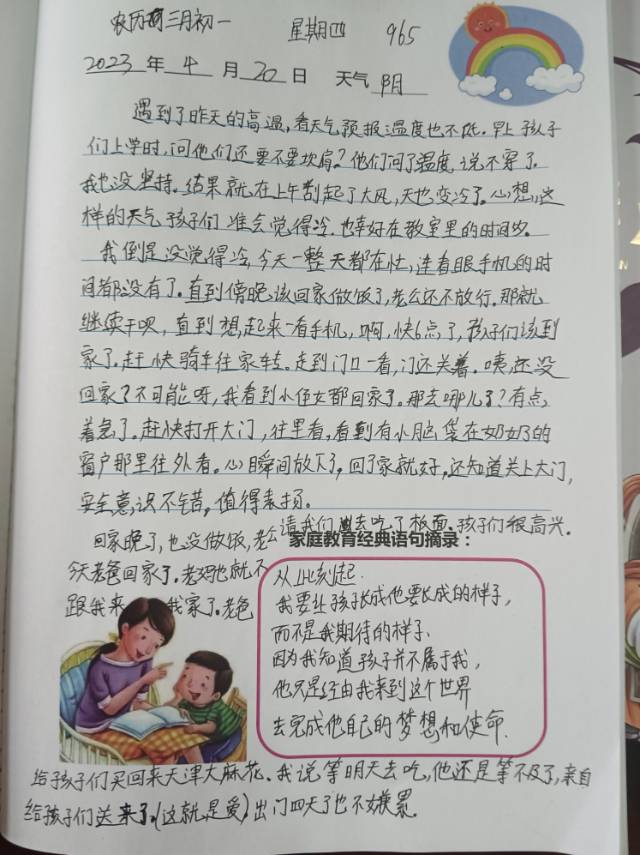 农历闰三月初一 星期四 965
2023 年 4 月 20 日 天气 阴
遇到了昨天的高温,看天气预报温度也不低.早上孩子
们上学时,问他们还要不要坎肩?他们问了温度,说不穿了.
我也没坚持.结果就在上午刮起了大风,天也变冷了.心想,这
样的天气孩子们准会觉得冷.也幸好在教室里的时间多.
我倒是没觉得冷,今天一整天都在忙,连看眼手机的时
间都没有了.直到傍晚该回家做饭了,老公还不放行.那就
继续干呗,直到想起来一看手机,啊,快6点了,孩子们该到
家了.赶快骑车往家转.走到门口一看,门还关着.咦,还没
回家?不可能呀,我看到小侄女都回家了.那去哪儿了?有点
着急了.赶快打开大门,往里看,看到有小脑袋在奶奶的
窗户那里往外看.心瞬间放下了,回了家就好,还知道关上大门,
安全意识不错,值得表扬.
回家晚了,也没做饭,老公请我们去吃了板面.孩子们很高兴.
今天老爸回家了.老妈他就不
跟我来我家了.老爸
家庭教育经典语句摘录:
从此刻起.
我要让孩子长成他要长成的样子,
而不是我期待的样子.
因为我知道孩子并不属于我,
他只是经由我来到这个世界
去完成他自己的梦想和使命.
给孩子们买回来天津大麻花.我说等明天去吃,他还是等不及了,亲自
给孩子们送来了.(这就是爱)出门四天了也不嫌累.